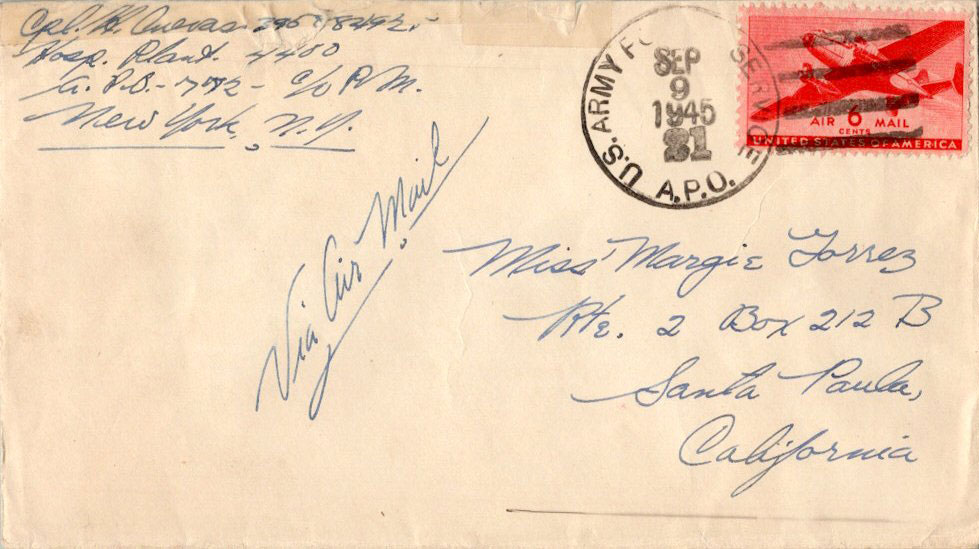 Cpl. H. Cuevas
Hosp. Plant. 4400
A. P.O. - 772 - C/o P.M.
New York, N.Y.
U.S. ARMY SERVICE
SEP
9
1945
A.P.O.
AIR 6 MAIL
CENTS
UNITED STATES OF AMERICA
Via Air Mail
Miss Margie Torrez
Rte. 2 Box 212 B
Santa Paula,
California